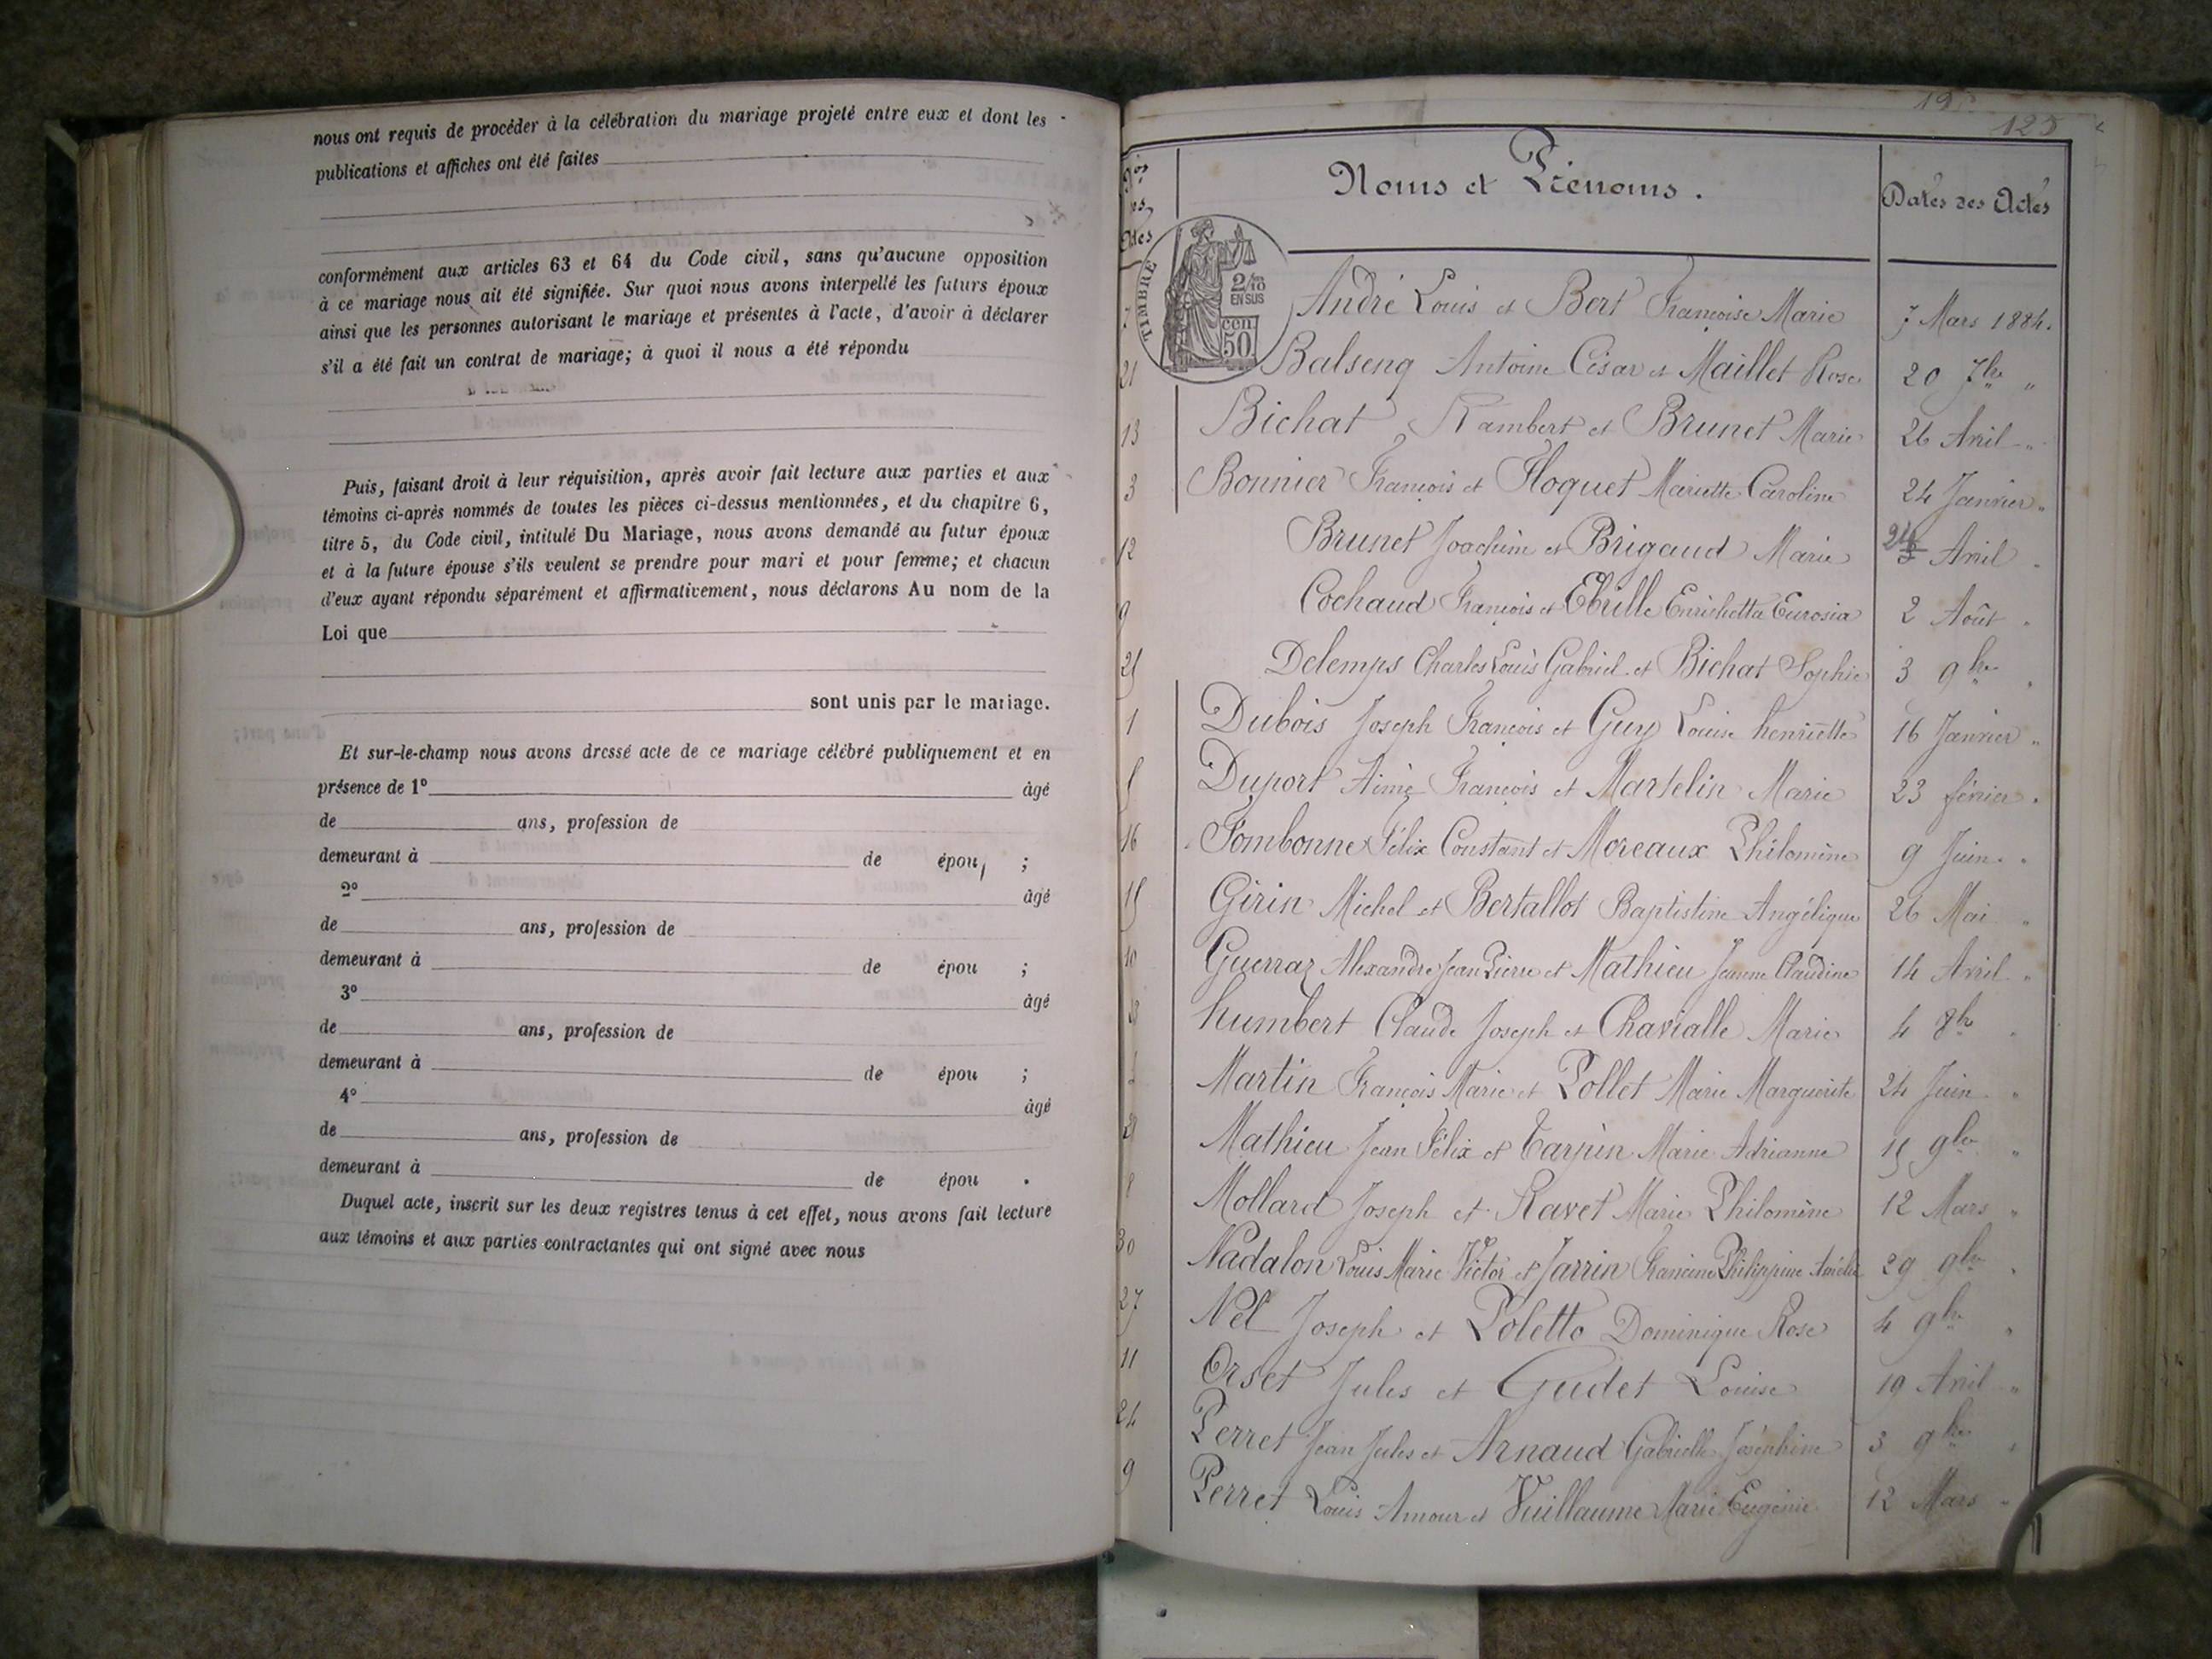 nous ont requis de procéder à la célébration du mariage projeté entre eux et dont les
publications et affiches ont été faites
conformément aux articles 63 et 64 du Code civil, sans qu'aucune opposition
à ce mariage nous ait été signifiée. Sur quoi nous avons interpellé les futurs époux
ainsi que les personnes autorisant le mariage et présentes à l'acte, d'avoir à déclarer
s'il a été fait un contrat de mariage; à quoi il nous a été répondu
Puis, faisant droit à leur réquisition, après avoir fait lecture aux parties et aux
témoins ci-après nommés de toutes les pièces ci-dessus mentionnées, et du chapitre 6,
titre 5, du Code civil, intitulé Du Mariage, nous avons demandé au futur époux
et à la future épouse s'ils veulent se prendre pour mari et pour femme; et chacun
d'eux ayant répondu séparément et affirmativement, nous déclarons Au nom de la
Loi que
sont unis par le mariage.
Et sur-le-champ nous avons dressé acte de ce mariage célébré publiquement et en
présence de 1° âgé
de ans, profession de
demeurant à de épou ;
2° âgé
de ans, profession de
demeurant à de épou ;
3° âgé
de ans, profession de
demeurant à de épou ;
4° âgé
de ans, profession de
demeurant à de épou .
Duquel acte, inscrit sur les deux registres tenus à cet effet, nous avons fait lecture
aux témoins et aux parties contractantes qui ont signé avec nous
19
125
Nos
Noms et Prénoms. Dates des Actes
TIMBRE
2/10
EN SUS
50 cen.
7 André Louis et Bert Françoise Marie 7 Mars 1884.
21 Balseng Antoine César et Maillet Rose 20 7bre "
13 Bichat Rambert et Brunet Marie 26 Avril "
3 Bonnier François et Floquet Mariette Caroline 24 Janvier "
12 Brunet Joachim et Brigaud Marie 24 Avril "
9 Cochaud François et Ebrille Enrichetta Eurosia 2 Août "
25 Delemps Charles Louis Gabriel et Bichat Sophie 3 9bre "
1 Dubois Joseph François et Guy Louise henriette 16 Janvier "
5 Duport Aimé François et Martelin Marie 23 février "
16 Fombonne Félix Constant et Moreaux Philomène 9 Juin "
15 Girin Michel et Bertallot Baptistine Angélique 26 Mai "
10 Guerraz Alexandre Jean Pierre et Mathieu Jeanne Claudine 14 Avril "
humbert Claude Joseph et Chavialle Marie 4 8bre "
Martin François Marie et Pollet Marie Marguerite 24 Juin "
Mathieu Jean Félix et Tarpin Marie Adrianne 15 9bre "
8 Mollard Joseph et Ravet Marie Philomène 12 Mars "
30 Nadalon Louis Marie Victor et Jarrin Francine Philippine Amélie 29 9bre "
27 Nel Joseph et Poletto Dominique Rose 4 9bre "
11 Orset Jules et Gudet Louise 19 Avril "
24 Perret Jean Jules et Arnaud Gabrielle Joséphine 3 9bre "
9 Perret Louis Amour et Vuillaume Marie Eugénie 12 Mars "